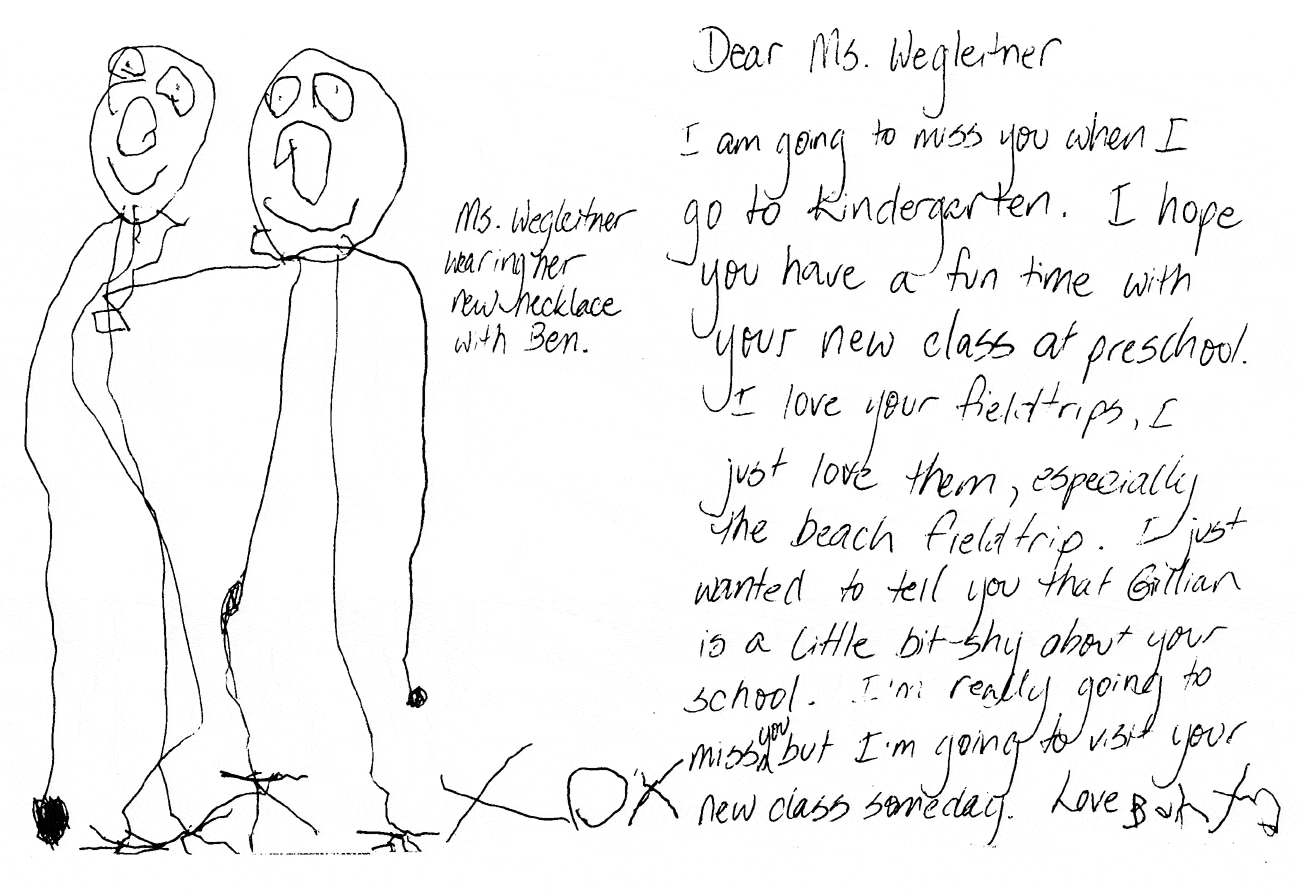 Dear Ms. Wegleitner
I am going to miss you when I
go to kindergarten. I hope
you have a fun time with
your new class at preschool.
I love your fieldtrips, I
just love them, especially
the beach fieldtrip. I just
wanted to tell you that Gillian
is a little bit shy about your
school. I'm really going to
miss you but I'm going to visit your
new class someday. Love
Ms. Wegleitner
wearing her
new necklace
with Ben.
XOX